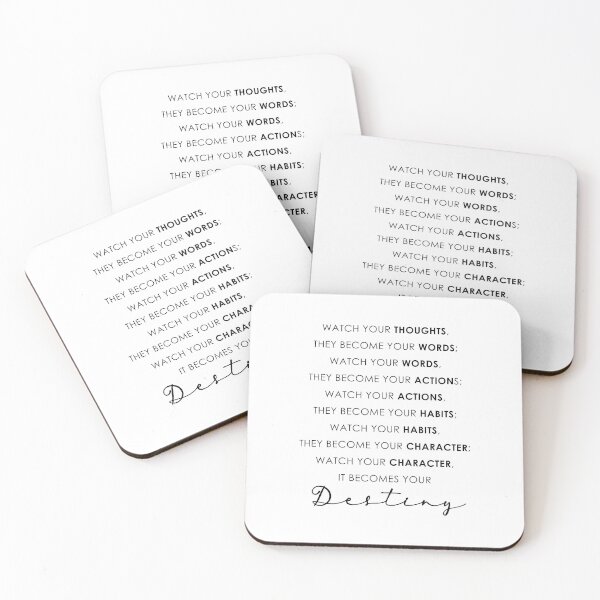 WATCH YOUR THOUGHTS,
THEY BECOME YOUR WORDS;
WATCH YOUR WORDS,
THEY BECOME YOUR ACTIONS;
WATCH YOUR ACTIONS,
THEY BECOME YOUR HABITS;
WATCH YOUR HABITS,
CHARACTER
WATCH YOUR THOUGHTS,
THEY BECOME YOUR WORDS;
WATCH YOUR WORDS,
THEY BECOME YOUR ACTIONS;
WATCH YOUR ACTIONS,
THEY BECOME YOUR HABITS;
WATCH YOUR HABITS,
THEY BECOME YOUR CHARACTER;
WATCH YOUR CHARACTER,
WATCH YOUR THOUGHTS,
THEY BECOME YOUR WORDS;
WATCH YOUR WORDS,
THEY BECOME YOUR ACTIONS;
WATCH YOUR ACTIONS,
THEY BECOME YOUR HABITS;
WATCH YOUR HABITS,
THEY BECOME YOUR CHARACTER
WATCH YOUR CHARACTER
IT BECOMES YOUR
WATCH YOUR THOUGHTS,
THEY BECOME YOUR WORDS;
WATCH YOUR WORDS,
THEY BECOME YOUR ACTIONS;
WATCH YOUR ACTIONS,
THEY BECOME YOUR HABITS;
WATCH YOUR HABITS,
THEY BECOME YOUR CHARACTER;
WATCH YOUR CHARACTER,
IT BECOMES YOUR
Destiny